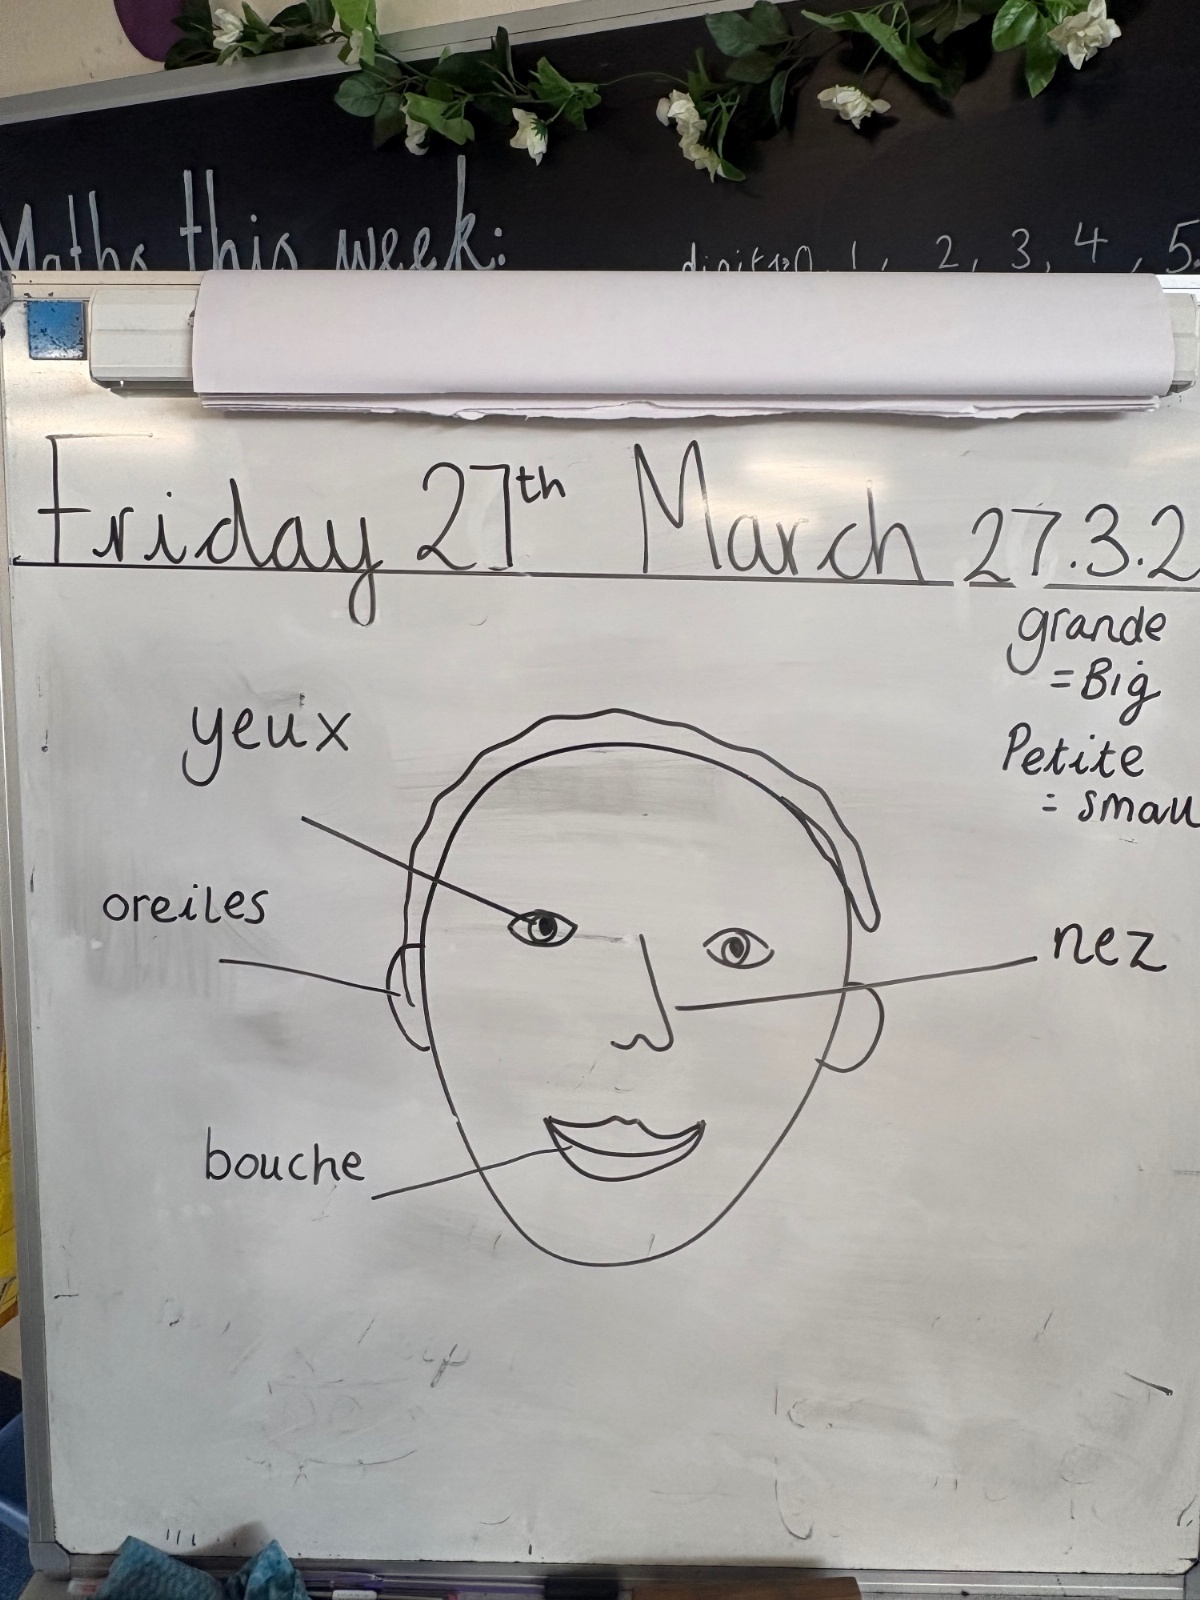 Maths this week:
1, 2, 3, 4, 5.
Friday 27th March 27.3.2
grande
=Big
Petite
= small
yeux
oreiles
nez
bouche